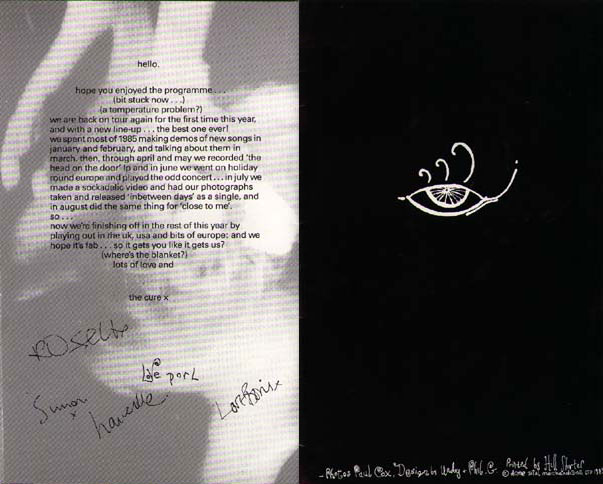 hello.
hope you enjoyed the programme . . .
(bit stuck now . . .)
(a temperature problem?)
we are back on tour again for the first time this year,
and with a new line-up . . . the best one ever!
we spent most of 1985 making demos of new songs in
january and february, and talking about them in
march. then, through april and may we recorded 'the
head on the door' lp and in june we went on holiday
round europe and played the odd concert . . . in july we
made a sockadelic video and had our photographs
taken and released 'inbetween days' as a single, and
in august did the same thing for 'close to me'.
so . . .
now we're finishing off in the rest of this year by
playing out in the uk, usa and bits of europe; and we
hope it's fab . . . so it gets you like it gets us?
(where's the blanket?)
lots of love and
the cure x
love porl
Simon
x
Photos Paul Cox. Design Undy + Phil. C. Printed by Hill Shorter